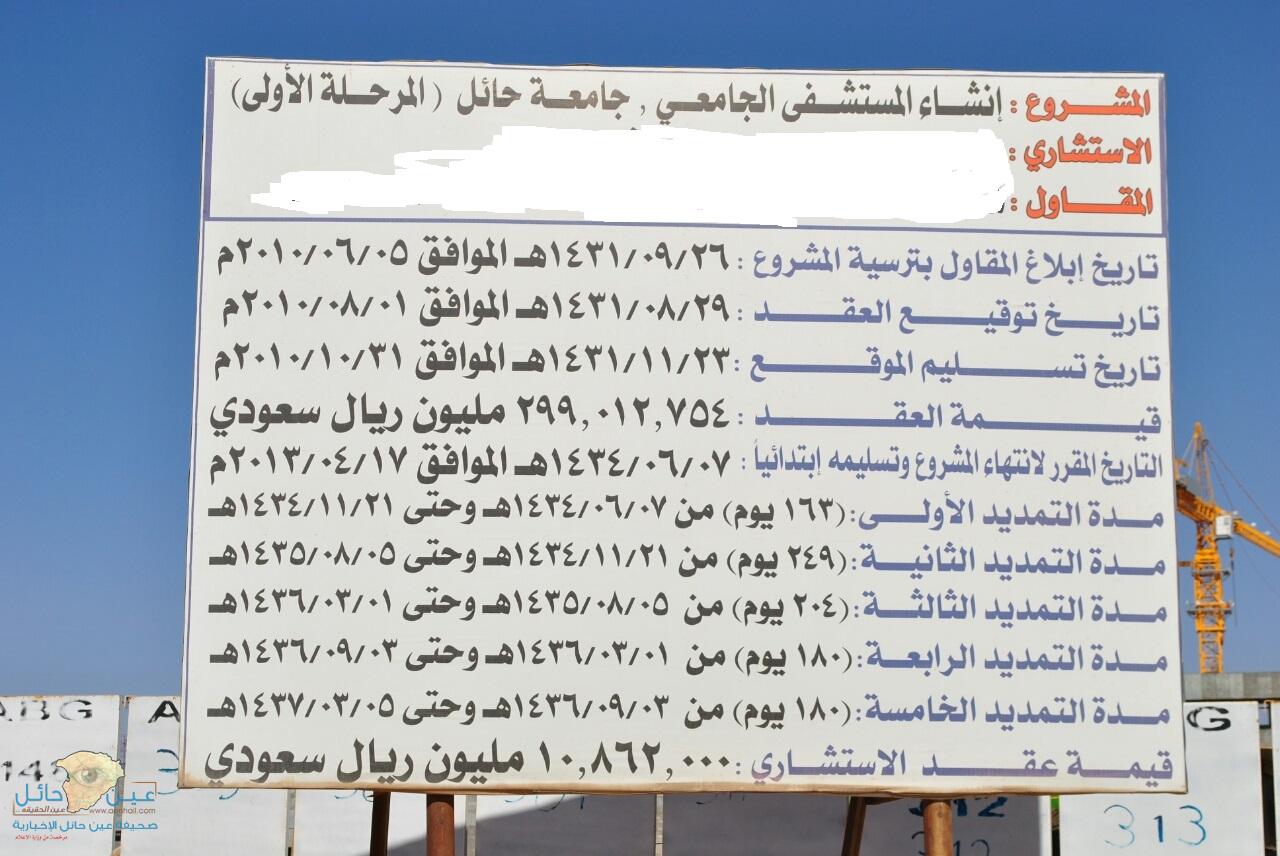 المشروع : إنشاء المستشفى الجامعي , جامعة حائل ( المرحلة الأولى)
الاستشاري :
المقاول :
تاريخ إبلاغ المقاول بترسية المشروع : ١٤٣١/٠٩/٢٦هـ الموافق ٢٠١٠/٠٦/٠٥م
تاريخ توقيع العقد : ١٤٣١/٠٨/٢٩هـ الموافق ٢٠١٠/٠٨/٠١م
تاريخ تسليم الموقع : ١٤٣١/١١/٢٣هـ الموافق ٢٠١٠/١٠/٣١م
قيمة العقد : ٢٩٩,٠١٢,٧٥٤ مليون ريال سعودي
التاريخ المقرر لانتهاء المشروع وتسليمه إبتدائياً : ١٤٣٤/٠٦/٠٧هـ الموافق ٢٠١٣/٠٤/١٧م
مدة التمديد الأولى: (١٦٣ يوم) من ١٤٣٤/٠٦/٠٧هـ وحتى ١٤٣٤/١١/٢١هـ
مدة التمديد الثانية: (٢٤٩ يوم) من ١٤٣٤/١١/٢١هـ وحتى ١٤٣٥/٠٨/٠٥هـ
مدة التمديد الثالثة: (٢٠٤ يوم) من ١٤٣٥/٠٨/٠٥هـ وحتى ١٤٣٦/٠٣/٠١هـ
مدة التمديد الرابعة: (١٨٠ يوم) من ١٤٣٦/٠٣/٠١هـ وحتى ١٤٣٦/٠٩/٠٣هـ
مدة التمديد الخامسة: (١٨٠ يوم) من ١٤٣٦/٠٩/٠٣هـ وحتى ١٤٣٧/٠٣/٠٥هـ
قيمة عقد الاستشاري : ١٠,٨٦٢,٠٠٠ مليون ريال سعودي
ABG
A
G
148
312
313
عين حائل
عين الحقيقه ...
www.aenhail.com
صحيفة عين حائل الإخبارية
مرخصة من وزارة الاعلام